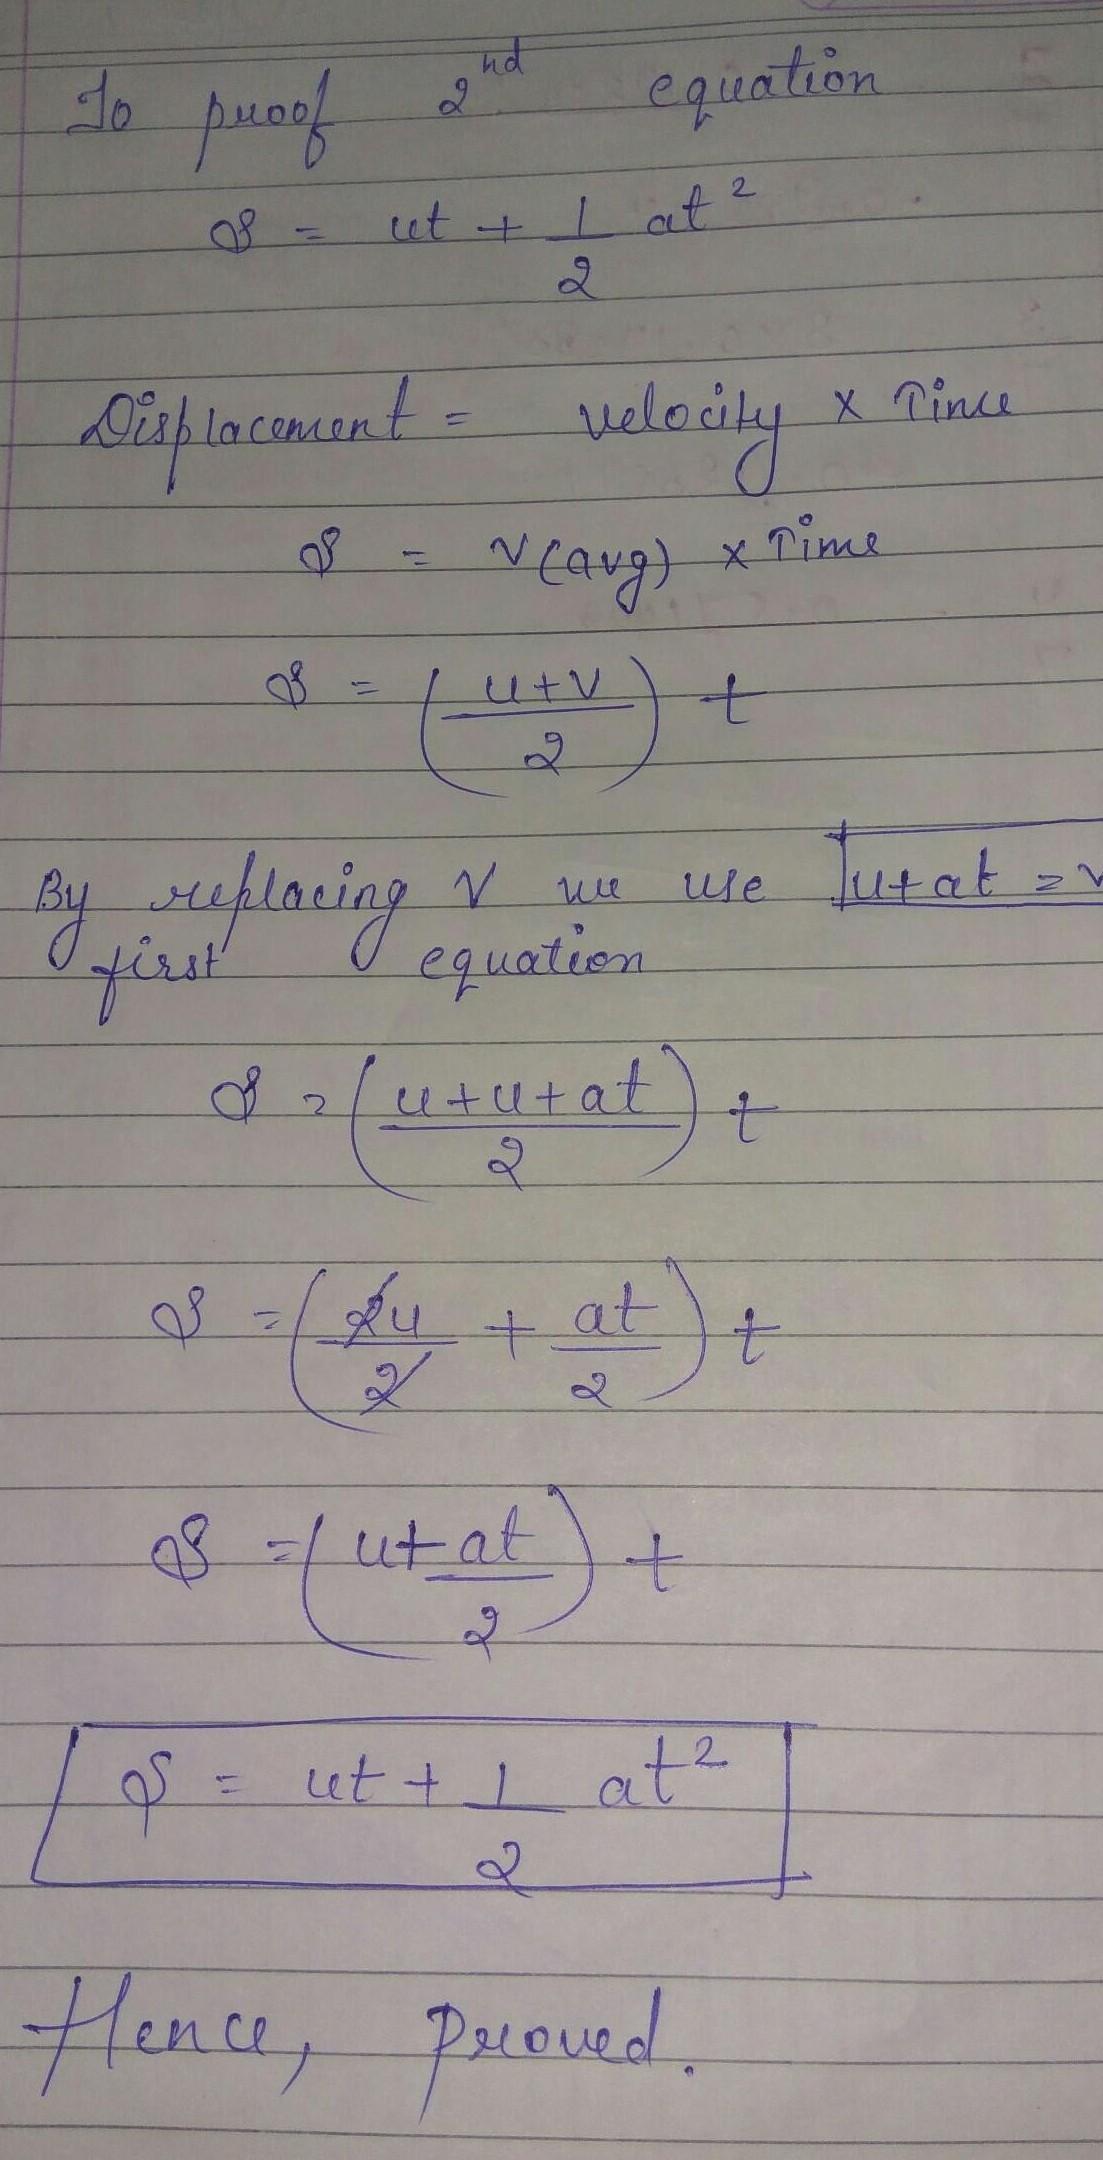 To proof 2nd equation
S = ut + 1/2 at²
Displacement = velocity × Time
S = v(avg) × Time
S = (u+v/2) t
By replacing V we use u+at = v
first equation
S = (u+u+at/2) t
S = (2u/2 + at/2) t
S = (u+at/2) t
S = ut + 1/2 at²
Hence, Proved.